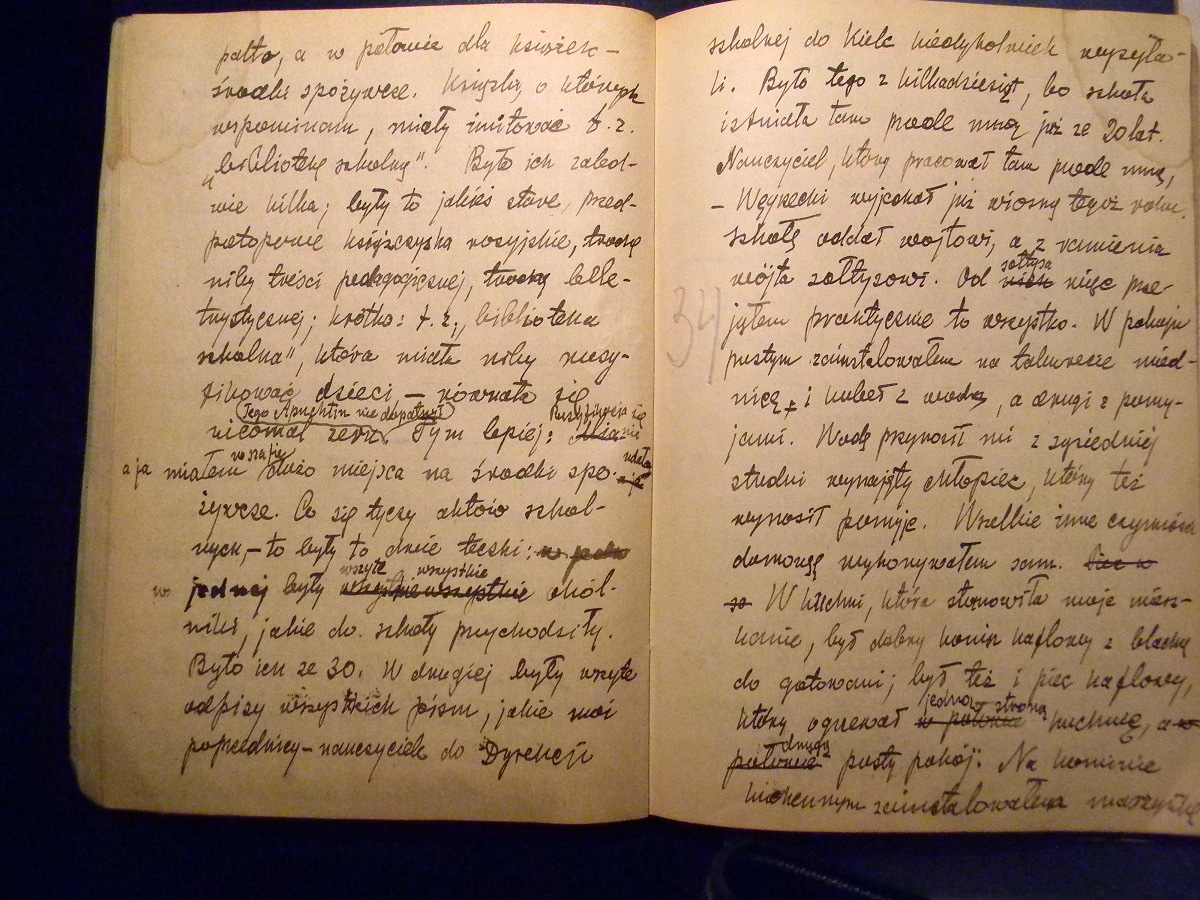 palto, a w połowie dla książek –
środki spożywcze. Książki, o których
wspominam, miały imitować t. z.
„bibliotekę szkolną". Było ich zaled-
wie kilka; były to jakieś stare, przed-
potopowe książczyska rosyjskie, trochę
niby treści pedagogicznej, trochę bele-
trystycznej; krótko: t. z. „biblioteka
szkolna", która miała niby rusy-
fikować dzieci – równała się
(Tego Apuchtin nie dopatrzył) Rusyfikacja się
niemal zeru. Tym lepiej: nie
w szafie udała
a ja miałem dużo miejsca na środki spo-
żywcze. Co się tyczy aktów szkol-
nych, – to były to dwie teczki:
wszyte wszystkie
w jednej były wszystkie wszystkie okól-
niki, jakie do szkoły przychodziły.
Było ich ze 30. W drugiej były wszyte
odpisy wszystkich pism, jakie moi
poprzednicy – nauczyciele do Dyrekcji
szkolnej do Kielc kiedykolwiek wysyła-
li. Było tego z kilkadziesiąt, bo szkoła
istniała tam przede mną już ze 20 lat.
Nauczyciel, który pracował tam przede mną,
– Węgrzecki wyjechał już wiosną tegoż roku.
Szkołę oddał wójtowi, a z ramienia
sołtysa
wójta sołtysowi. Od nich więc prze-
34
jąłem praktycznie to wszystko. W pokoju
pustym zainstalowałem na taburecie mied-
nicę i kubeł z wodą, a drugi z pomy-
jami. Wodę przynosił mi z sąsiedniej
studni wynajęty chłopiec, który też
wynosił pomyje. Wszelkie inne czynności
domowe wykonywałem sam.
W kuchni, która stanowiła moje miesz-
kanie, był dobry komin kaflowy z blachą
do gotowani; był też i piec kaflowy,
jedną stroną
który ogrzewał w połowie kuchnię, a w
drugą
połowie pusty pokój. Na kominie
kuchennym zainstalowałem maszynkę